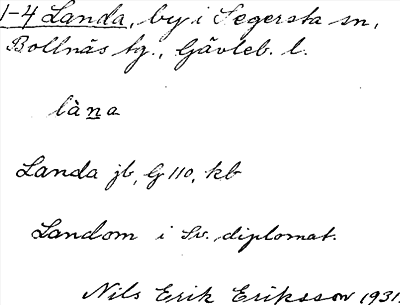 1-4 Landa, by i Segersta sn,
Bollnäs tg., Gävleb. l.
làna
Landa jb, G 110, kb
Landom i Sv. diplomat.
Nils Erik Eriksson 1931.